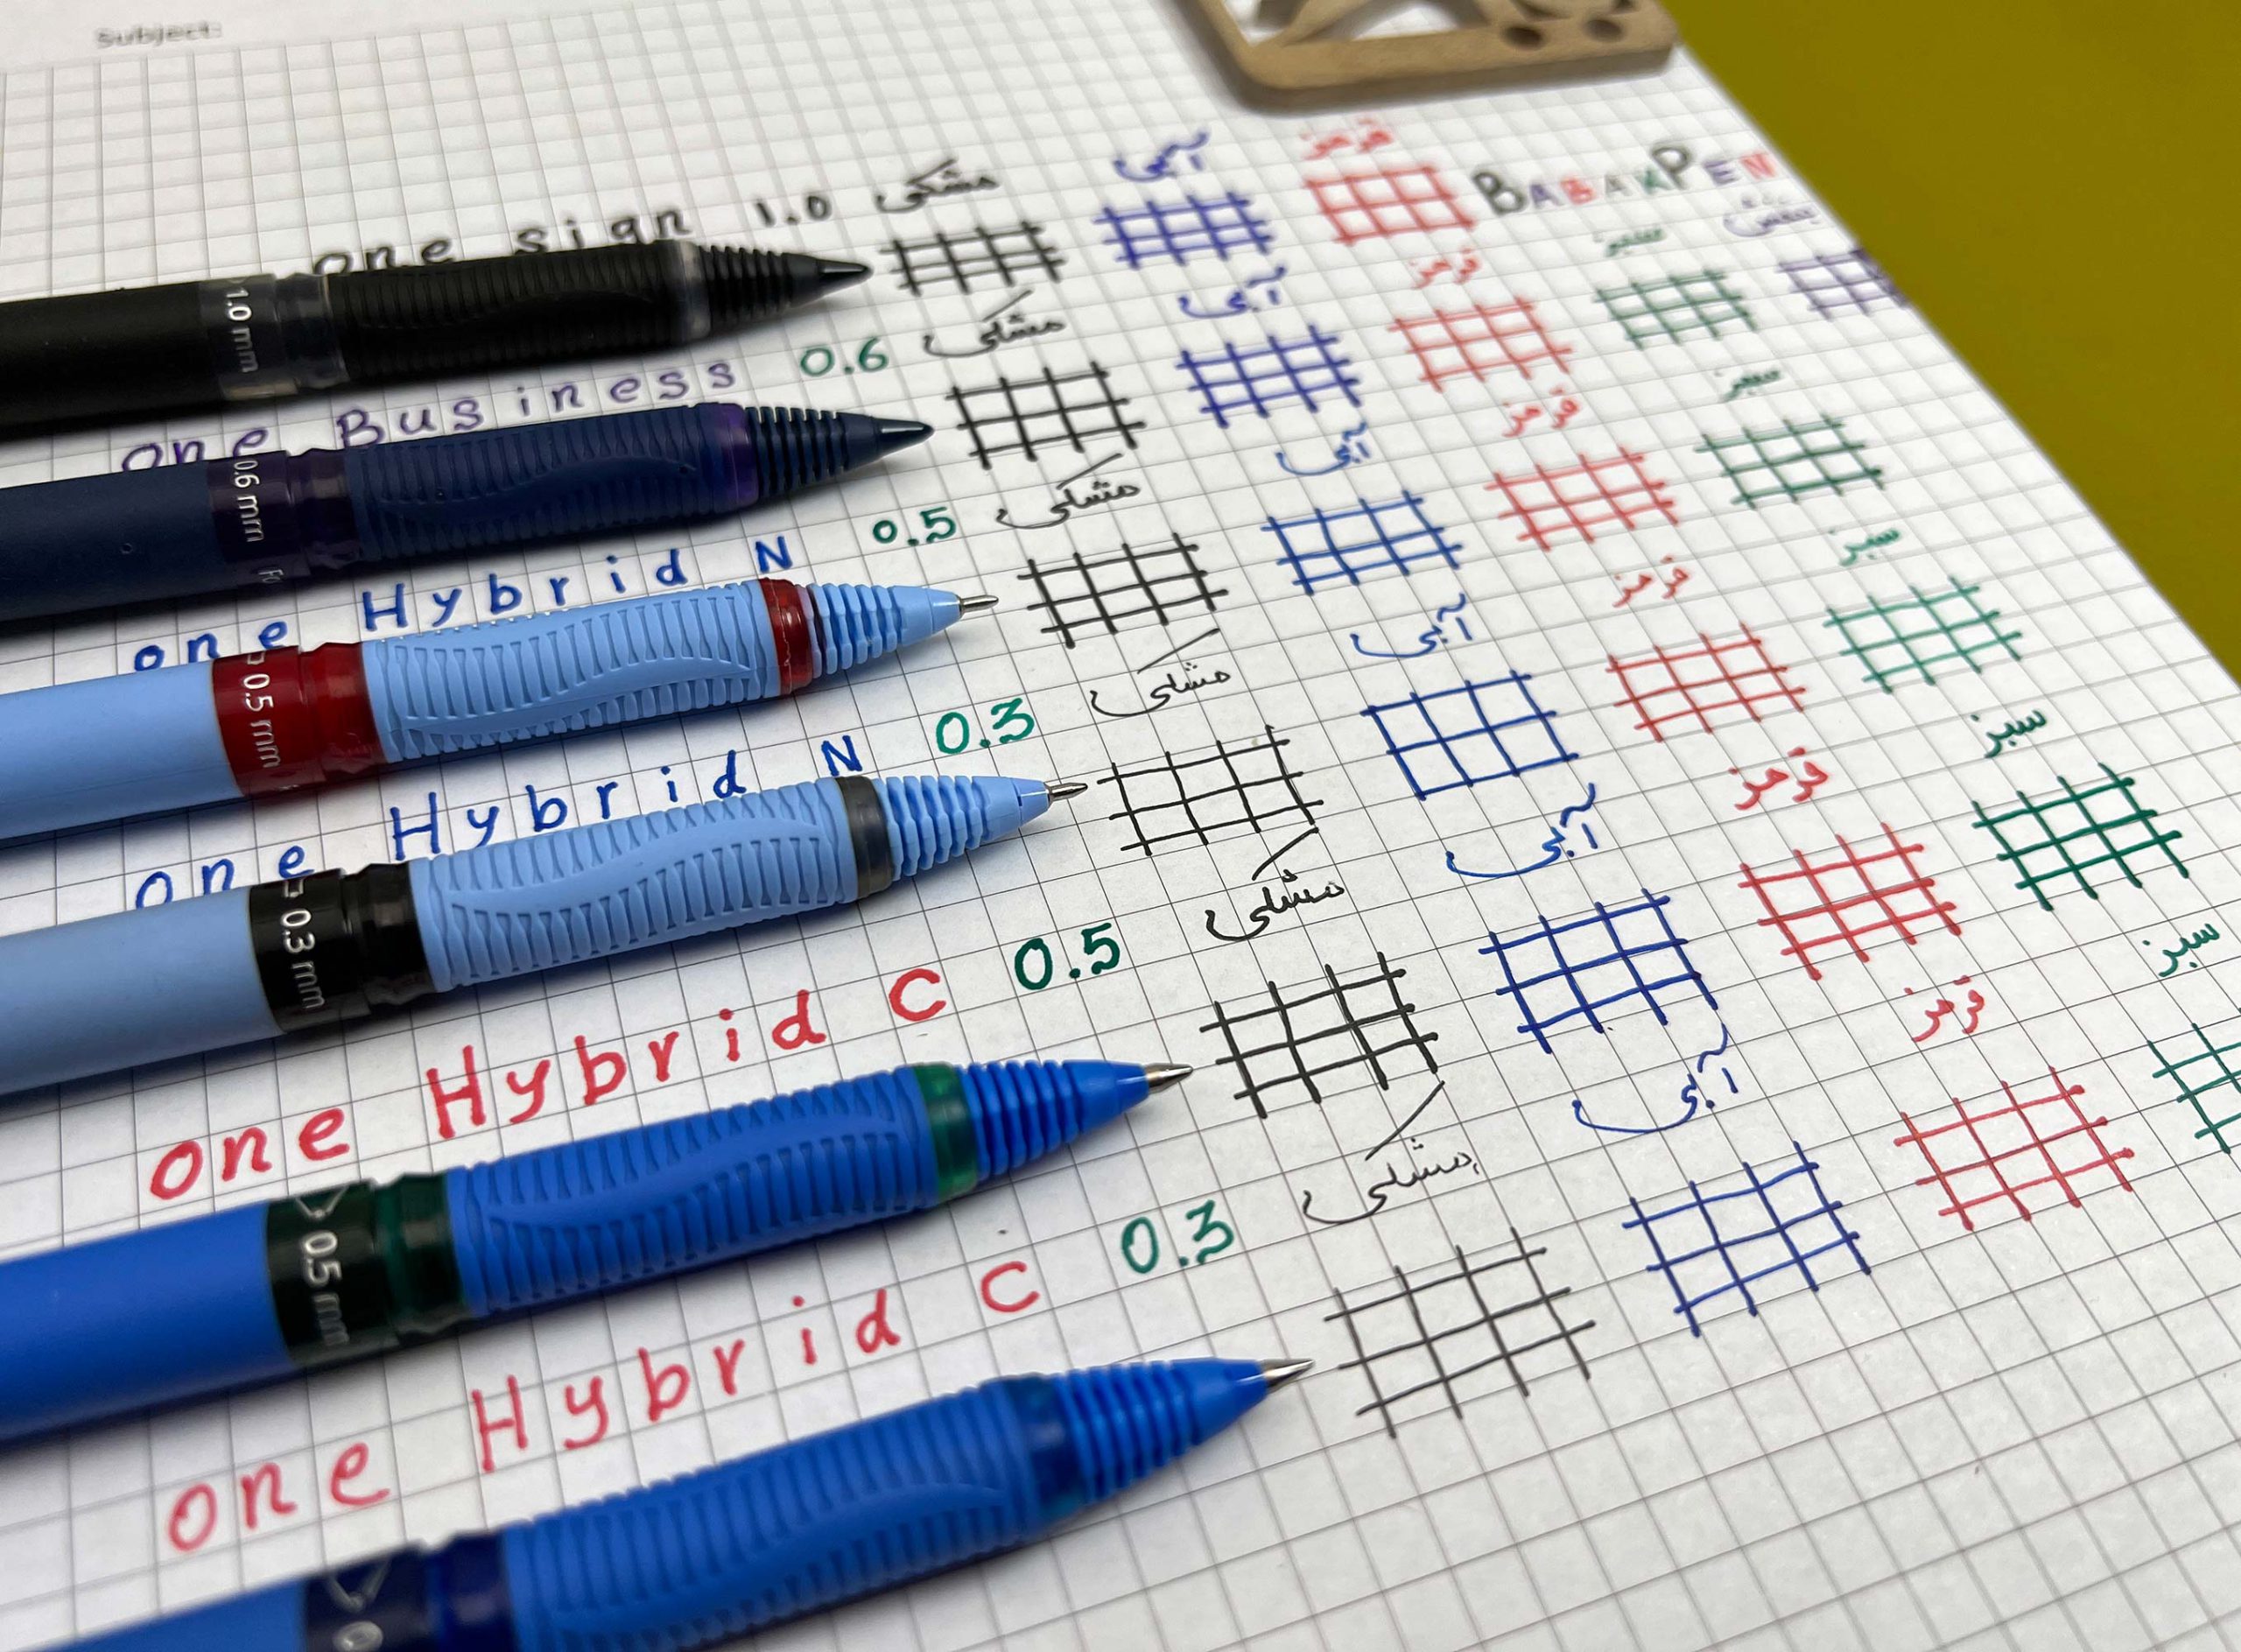 Subject:
one sign 1.0 مشکی آبی قرمز BABAKPEN
1.0 mm
one Business 0.6 مشکی آبی قرمز سبز بنفش
0.6 mm
one Hybrid N 0.5 مشکی آبی قرمز سبز
0.5 mm
one Hybrid N 0.3 مشکی آبی قرمز سبز
0.3 mm
one Hybrid C 0.5 مشکی آبی قرمز سبز
0.5 mm
one Hybrid C 0.3 مشکی آبی قرمز سبز